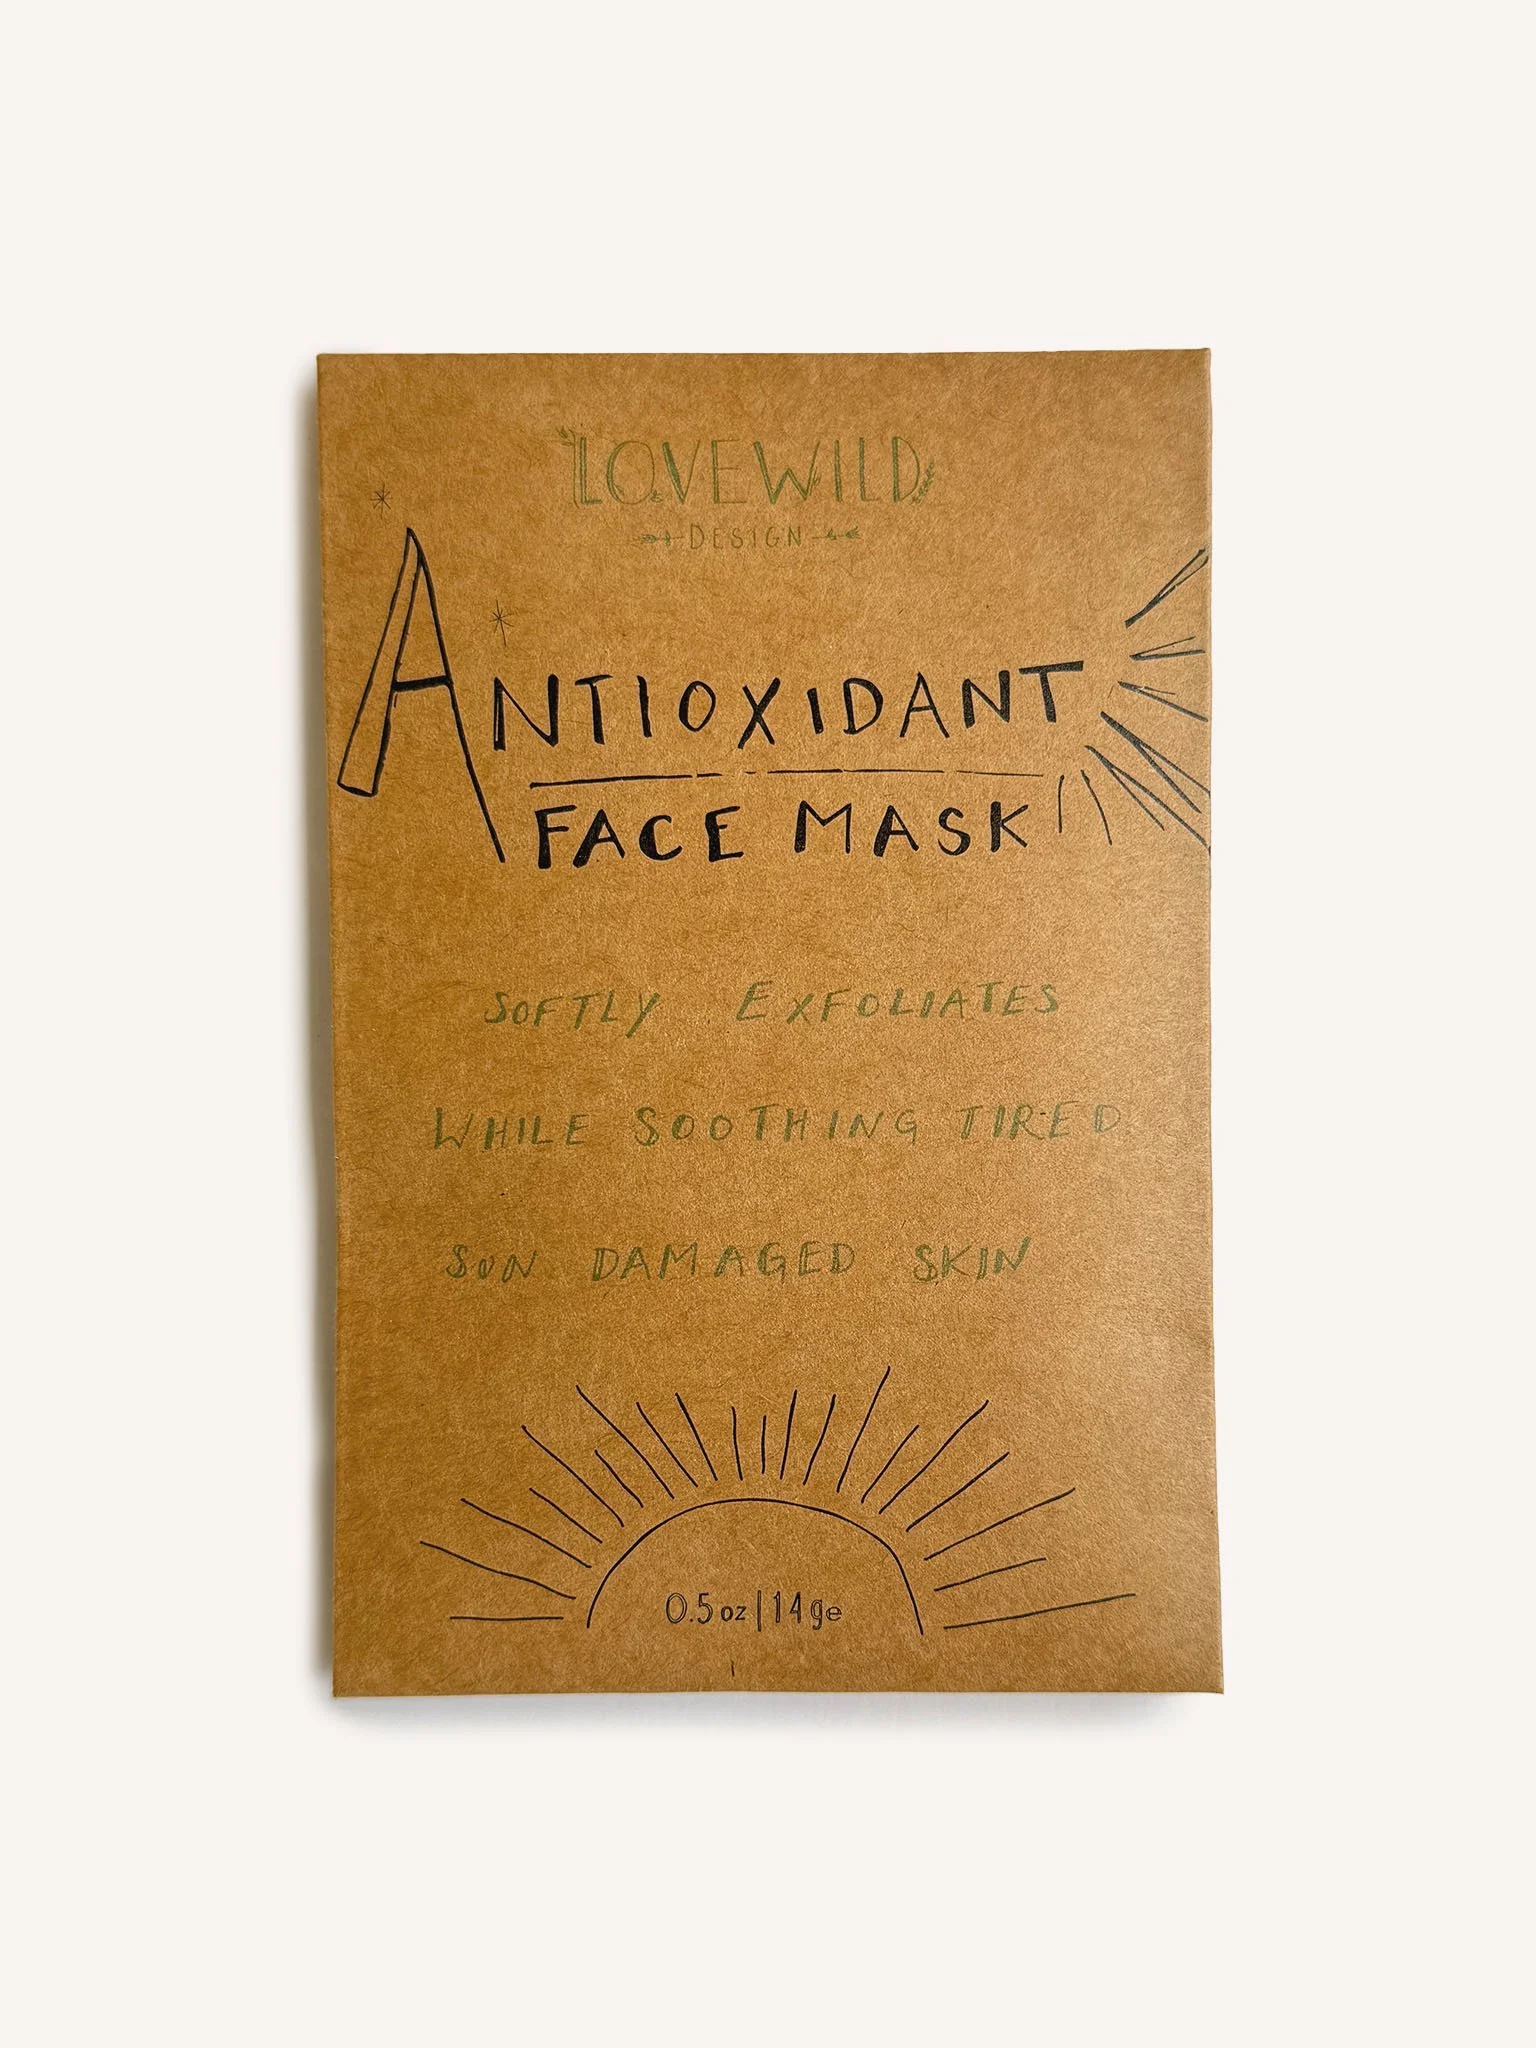 LOVEWILD
DESIGN
ANTIOXIDANT
FACE MASK
SOFTLY EXFOLIATES
WHILE SOOTHING TIRED
SUN DAMAGED SKIN
0.5 oz | 14ge